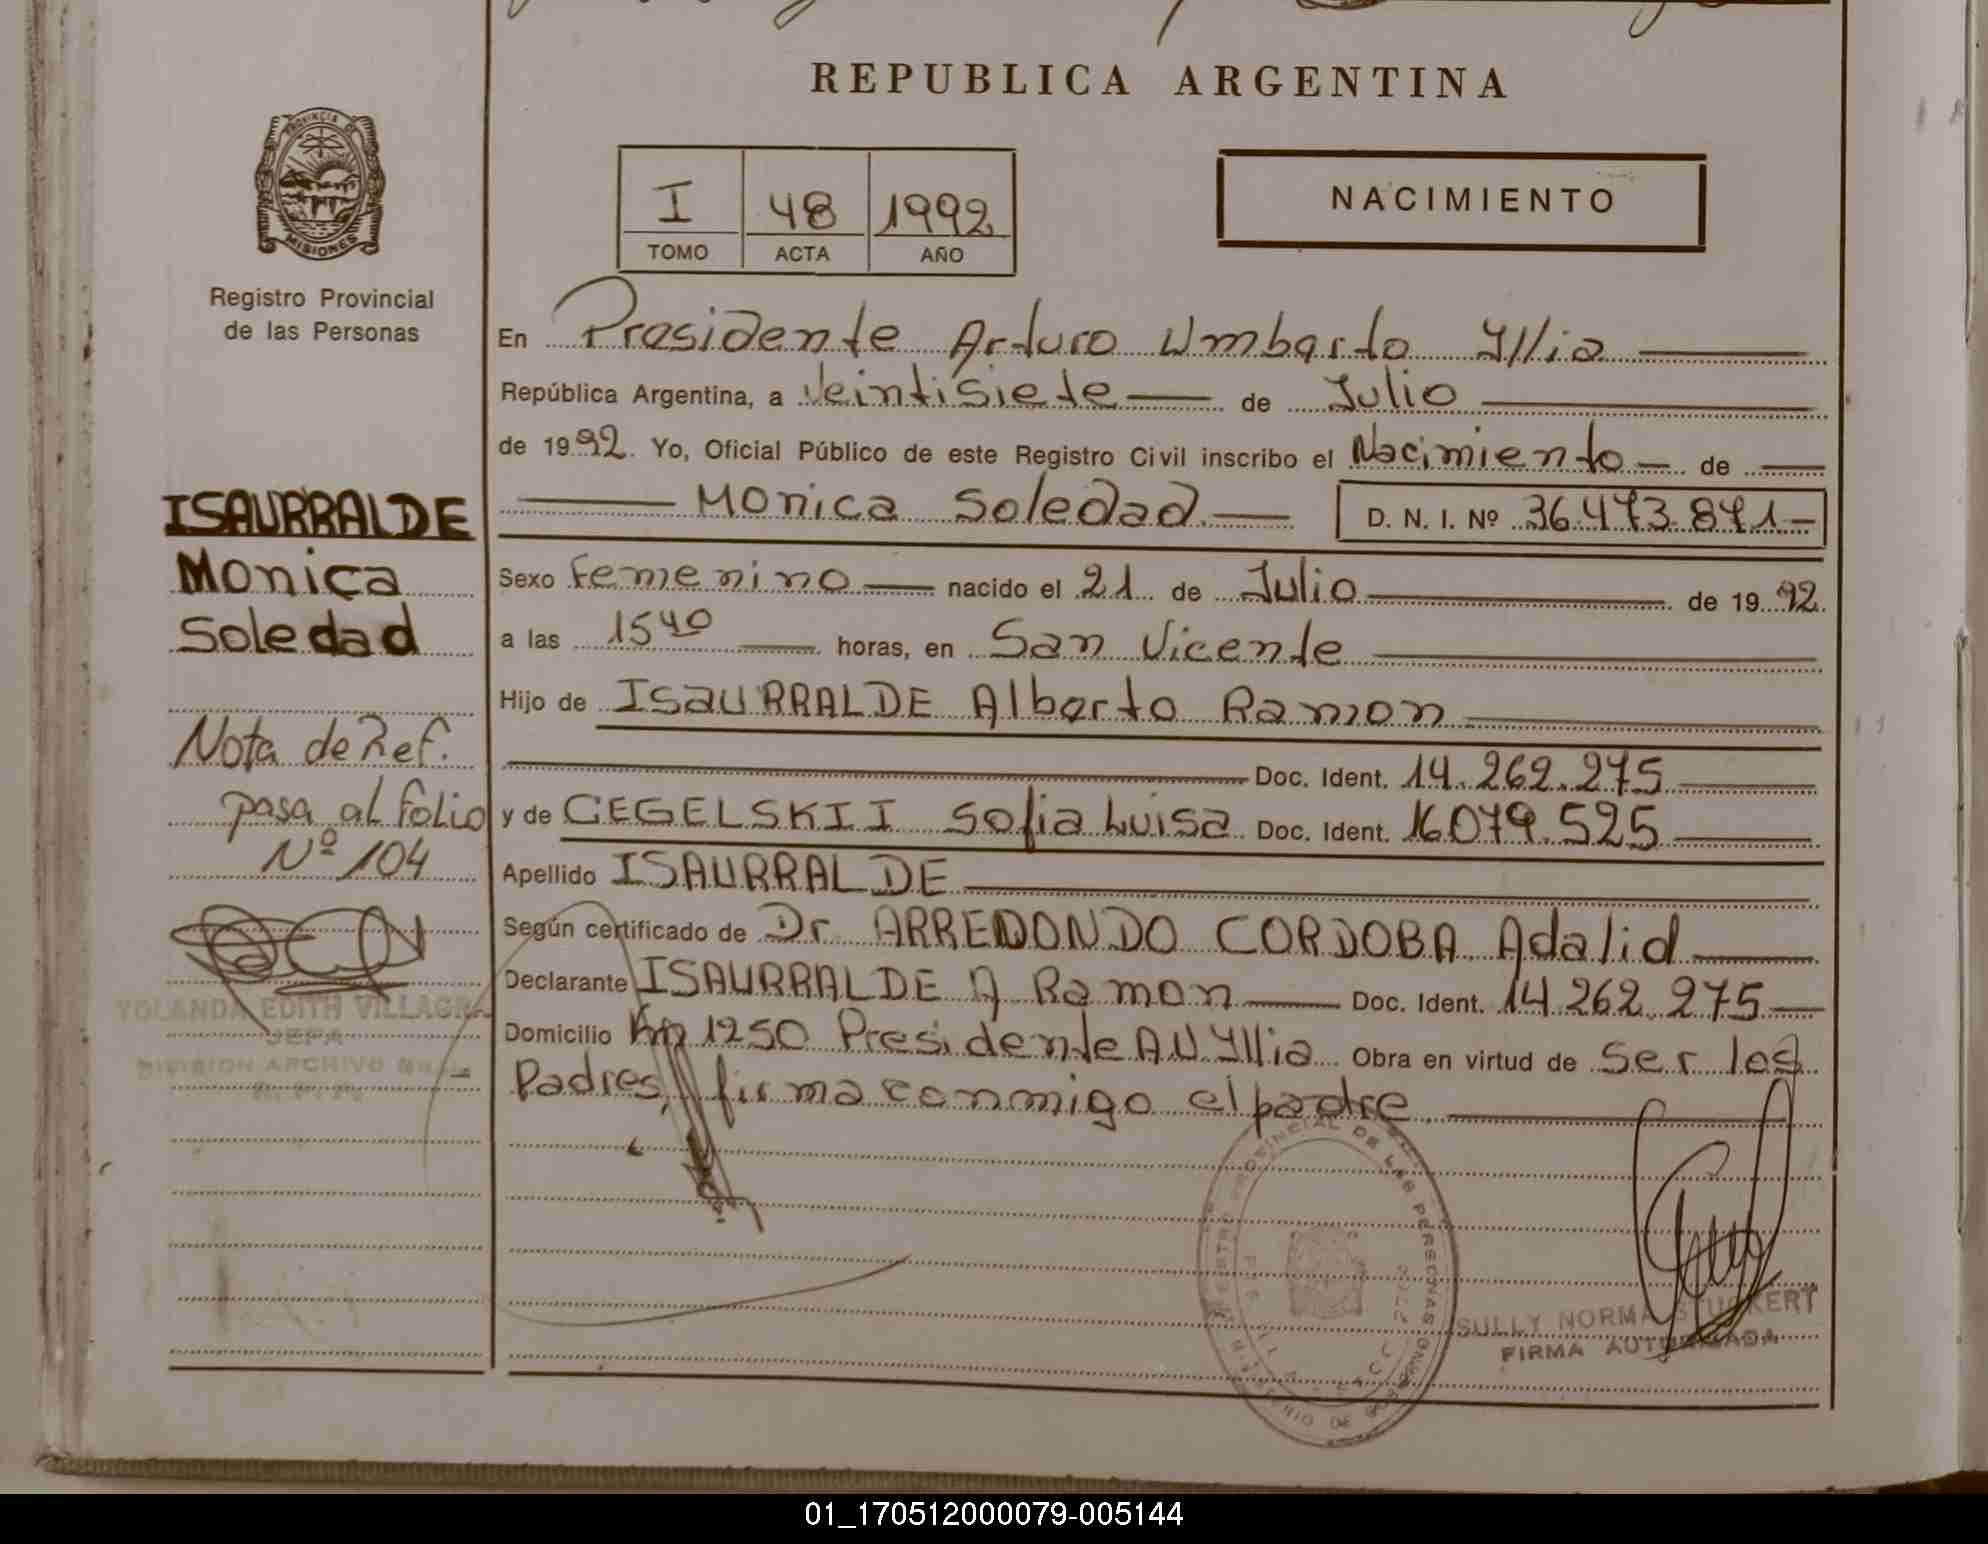 REPUBLICA ARGENTINA
PROVINCIA DE
MISIONES
Registro Provincial
de las Personas
I 48 1992
TOMO ACTA AÑO
NACIMIENTO
En Presidente Arturo Umberto Illia
República Argentina, a Veintisiete de Julio
de 1992. Yo, Oficial Público de este Registro Civil inscribo el Nacimiento de
Monica Soledad D. N. I. Nº 36.473.871
Sexo Femenino nacido el 21 de Julio de 1992.
a las 15 40 horas, en San Vicente
Hijo de ISAURRALDE Alberto Ramon
Doc. Ident. 14.262.275
y de CEGELSKII Sofia Luisa Doc. Ident. 16.079.525
Apellido ISAURRALDE
Según certificado de Dr. ARREDONDO CORDOBA Adalid
Declarante ISAURRALDE A Ramon Doc. Ident. 14.262.275
Domicilio Km 1250 Presidente A U Illia Obra en virtud de Ser los
Padres, firma conmigo el padre
ISAURRALDE
Monica
Soledad
Nota de Ref.
pasa al folio
Nº 104
YOLANDA EDITH VILLAGRA
JEFA
DIVISION ARCHIVO
PROVINCIAL DE LAS PERSONAS
SULLY NORMA STUCKERT
FIRMA AUTORIZADA
01_170512000079-005144